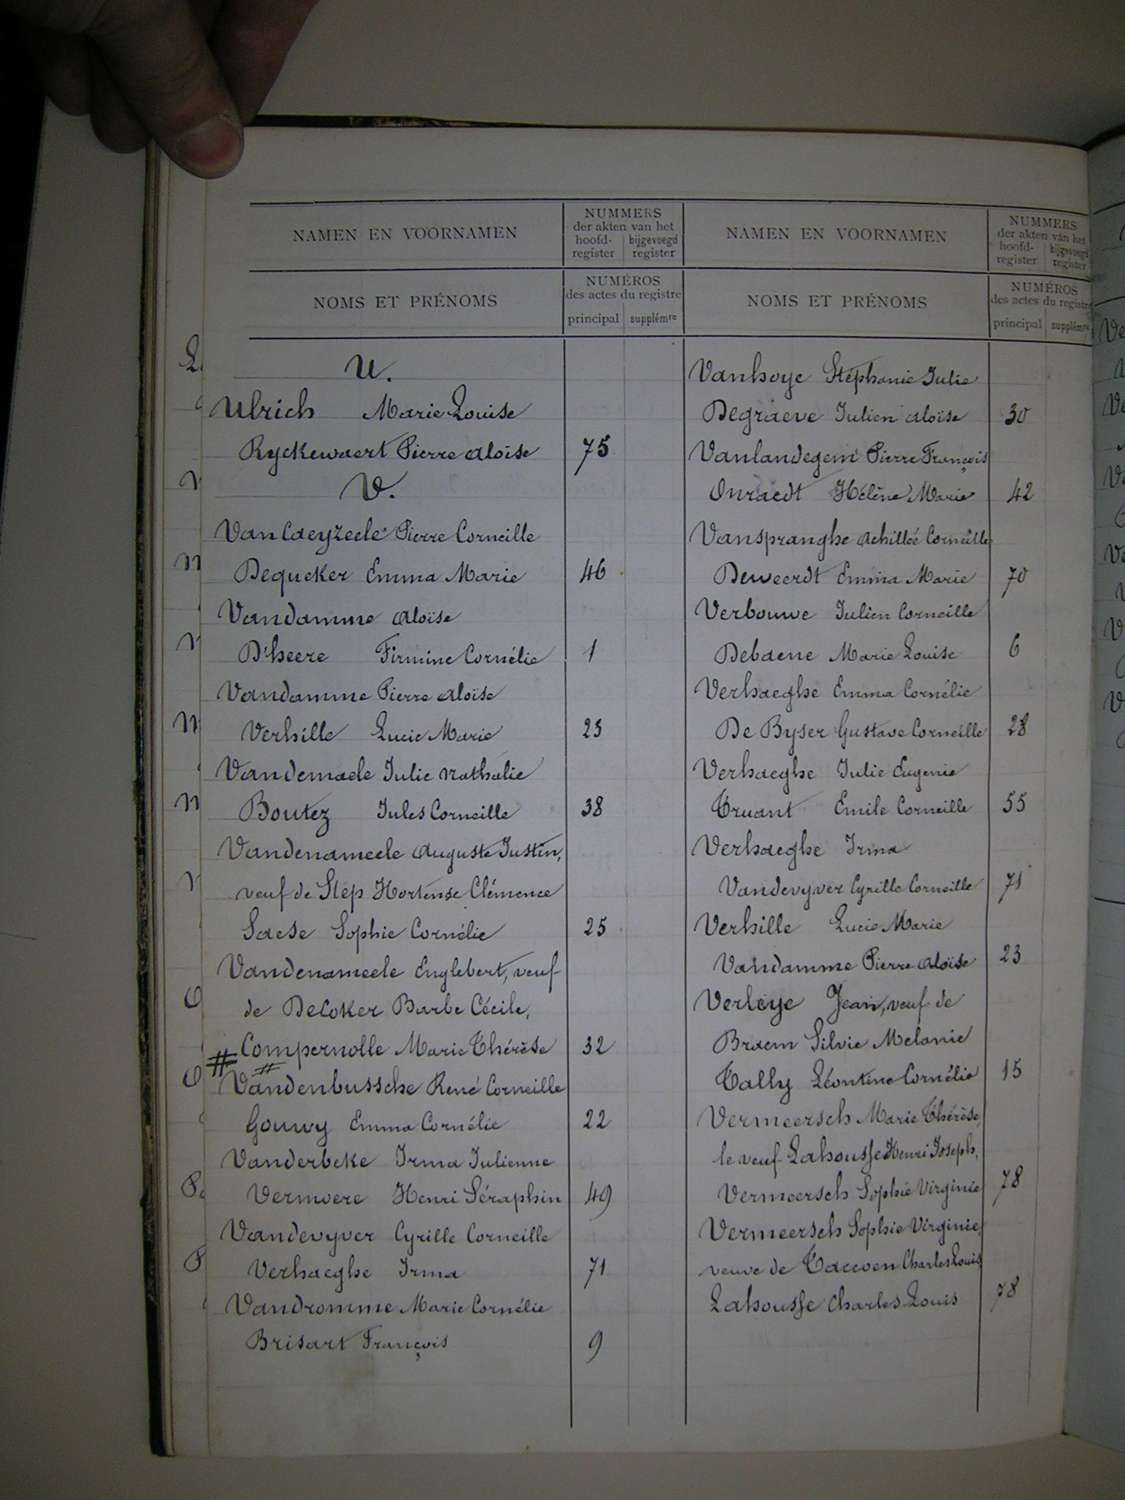 NAMEN EN VOORNAMEN
NUMMERS
der akten van het
hoofd-
register
bijgevoegd
register
NOMS ET PRÉNOMS
NUMÉROS
des actes du registre
principal
supplémre
U.
Ulrich Marie Louise
Ryckewaert Pierre Aloïse 75
V.
Van Caeyzeele Pierre Corneille
Dequeker Emma Marie 46
Vandamme Aloïse
D'heere Firmine Cornélie 1
Vandamme Pierre Aloïse
Verhille Lucie Marie 23
Vandemaele Julie Nathalie
Boutez Jules Corneille 38
Vandenameele Auguste Justin,
veuf de Stép Hortense Clémence
Saese Sophie Cornélie 25
Vandenameele Englebert, veuf
de DeCoker Barbe Cécile,
# Compernolle Marie Thérèse 32
#
Vandenbussche René Corneille
Gouwy Emma Cornélie 22
Vanderbeke Irma Julienne
Vermoere Henri Séraphin 49
Vandevyver Cyrille Corneille
Verhaeghe Irma 71
Vandromme Marie Cornélie
Brisart François 9
NAMEN EN VOORNAMEN
NUMMERS
der akten van het
hoofd-
register
bijgevoegd
register
NOMS ET PRÉNOMS
NUMÉROS
des actes du registre
principal
supplémre
Vanhoye Stéphanie Julie
Degraeve Julien Aloïse 30
Vanlandegem Pierre François
Onraedt Hélène Marie 42
Vanspranghe Achille Corneille
Deweerdt Emma Marie 70
Verbouwe Julien Corneille
Debaene Marie Louise 6
Verhaeghe Emma Cornélie
De Byser Gustave Corneille 28
Verhaeghe Julie Eugenie
Truant Emile Corneille 55
Verhaeghe Irma
Vandevyver Cyrille Corneille 71
Verhille Lucie Marie
Vandamme Pierre Aloïse 23
Verleye Jean, veuf de
Braem Silvie Melanie
Tally Léontine Cornélie 15
Vermeersch Marie Thérèse,
le veuf Lahousse Henri Joseph,
Vermeersch Sophie Virginie 78
Vermeersch Sophie Virginie,
veuve de Taccoen Charles Louis
Lahousse Charles Louis 78